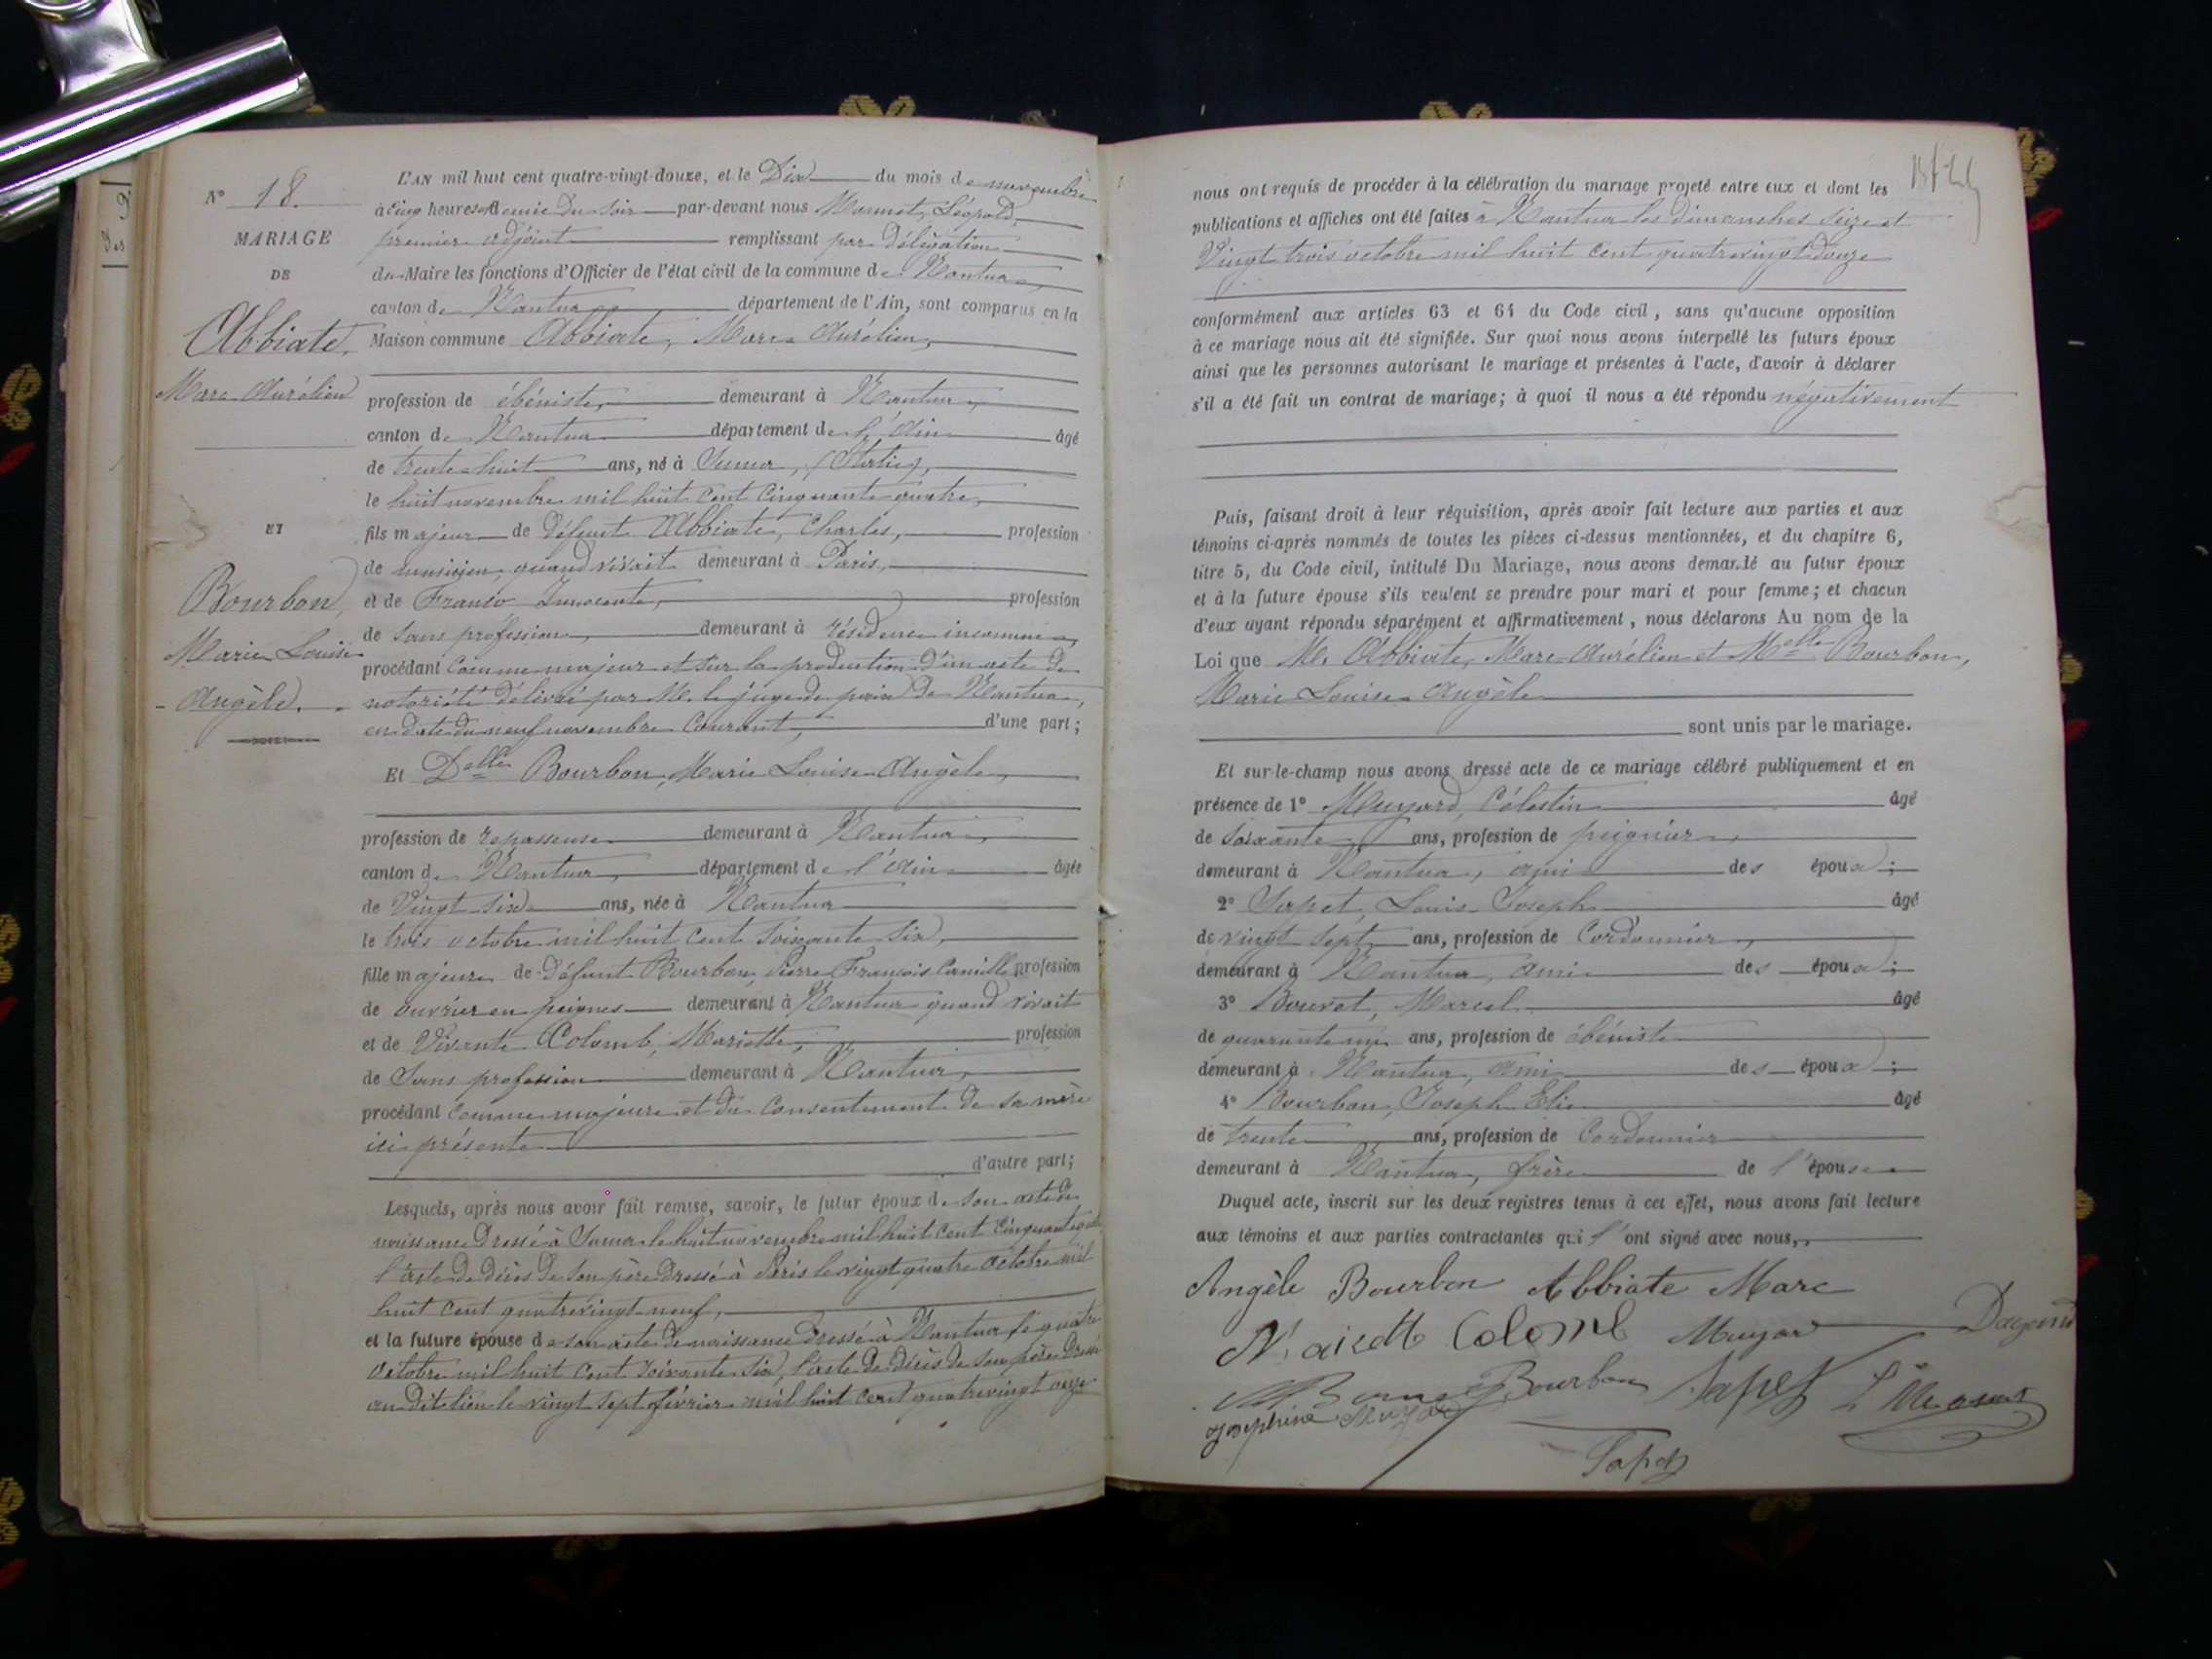 N° 18.
MARIAGE
DE
Abbiate,
Marc Aurélien
ET
Bourbon,
Marie Louise
Angèle.
L'AN mil huit cent quatre-vingt-douze, et le Dix du mois de novembre
à cinq heures et demie du soir par-devant nous Monnet, Léopold,
premier adjoint remplissant par délégation
du Maire les fonctions d'Officier de l'état civil de la commune de Nantua,
canton de Nantua département de l'Ain, sont comparus en la
Maison commune Abbiate, Marc Aurélien,
profession de ébéniste, demeurant à Nantua,
canton de Nantua département de l'Ain âgé
de trente-huit ans, né à (Italie),
le huit novembre mil huit cent cinquante quatre,
fils majeur de défunt Abbiate, Charles, profession
de musicien, quand vivait demeurant à Paris,
et de Franco Innocente, profession
de sans profession, demeurant à résidence inconnue,
procédant comme majeur et sur la production d'un acte de
notoriété délivré par M. le juge de paix de Nantua,
en date du neuf novembre courant, d'une part;
Et Delle Bourbon, Marie Louise Angèle,
profession de repasseuse demeurant à Nantua,
canton de Nantua, département de l'Ain âgée
de vingt-six ans, née à Nantua
le trois octobre mil huit cent soixante six,
fille majeure de défunt Bourbon, Pierre François Camille profession
de ouvrier en peignes demeurant à Nantua quand vivait
et de vivante Colomb, Mariette, profession
de sans profession demeurant à Nantua,
procédant comme majeure et du consentement de sa mère
ici présente
d'autre part;
Lesquels, après nous avoir fait remise, savoir, le futur époux de son acte de
naissance dressé à le huit novembre mil huit cent cinquante
l'acte de décès de son père dressé à Paris le vingt quatre octobre mil
huit cent quatre vingt neuf,
et la future épouse de son acte de naissance dressé à Nantua le quatre
octobre mil huit cent soixante six, l'acte de décès de son père dressé
au dit lieu le vingt sept février mil huit cent quatre vingt onze
nous ont requis de procéder à la célébration du mariage projeté entre eux et dont les
publications et affiches ont été faites à Nantua les dimanches seize et
vingt trois octobre mil huit cent quatre vingt douze
conformément aux articles 63 et 64 du Code civil, sans qu'aucune opposition
à ce mariage nous ait été signifiée. Sur quoi nous avons interpellé les futurs époux
ainsi que les personnes autorisant le mariage et présentes à l'acte, d'avoir à déclarer
s'il a été fait un contrat de mariage; à quoi il nous a été répondu négativement
Puis, faisant droit à leur réquisition, après avoir fait lecture aux parties et aux
témoins ci-après nommés de toutes les pièces ci-dessus mentionnées, et du chapitre 6,
titre 5, du Code civil, intitulé Du Mariage, nous avons demandé au futur époux
et à la future épouse s'ils veulent se prendre pour mari et pour femme; et chacun
d'eux ayant répondu séparément et affirmativement, nous déclarons Au nom de la
Loi que M. Abbiate, Marc-Aurélien et Melle Bourbon,
Marie Louise Angèle
sont unis par le mariage.
Et sur-le-champ nous avons dressé acte de ce mariage célébré publiquement et en
présence de 1° Muyard, Célestin âgé
de soixante ans, profession de peignier,
demeurant à Nantua, ami des époux;
2° Sapet, Louis Joseph âgé
de vingt sept ans, profession de Cordonnier,
demeurant à Nantua, ami des époux;
3° Bouvet, Marcel âgé
de quarante un ans, profession de ébéniste
demeurant à Nantua, ami des époux;
4° Bourbon, Joseph Elie âgé
de trente ans, profession de Cordonnier
demeurant à Nantua, frère de l'épouse
Duquel acte, inscrit sur les deux registres tenus à cet effet, nous avons fait lecture
aux témoins et aux parties contractantes qui l'ont signé avec nous,
Angèle Bourbon Abbiate Marc
Colomb Muyard
Bourbon Sapet
Josephine Muyard
Sapet